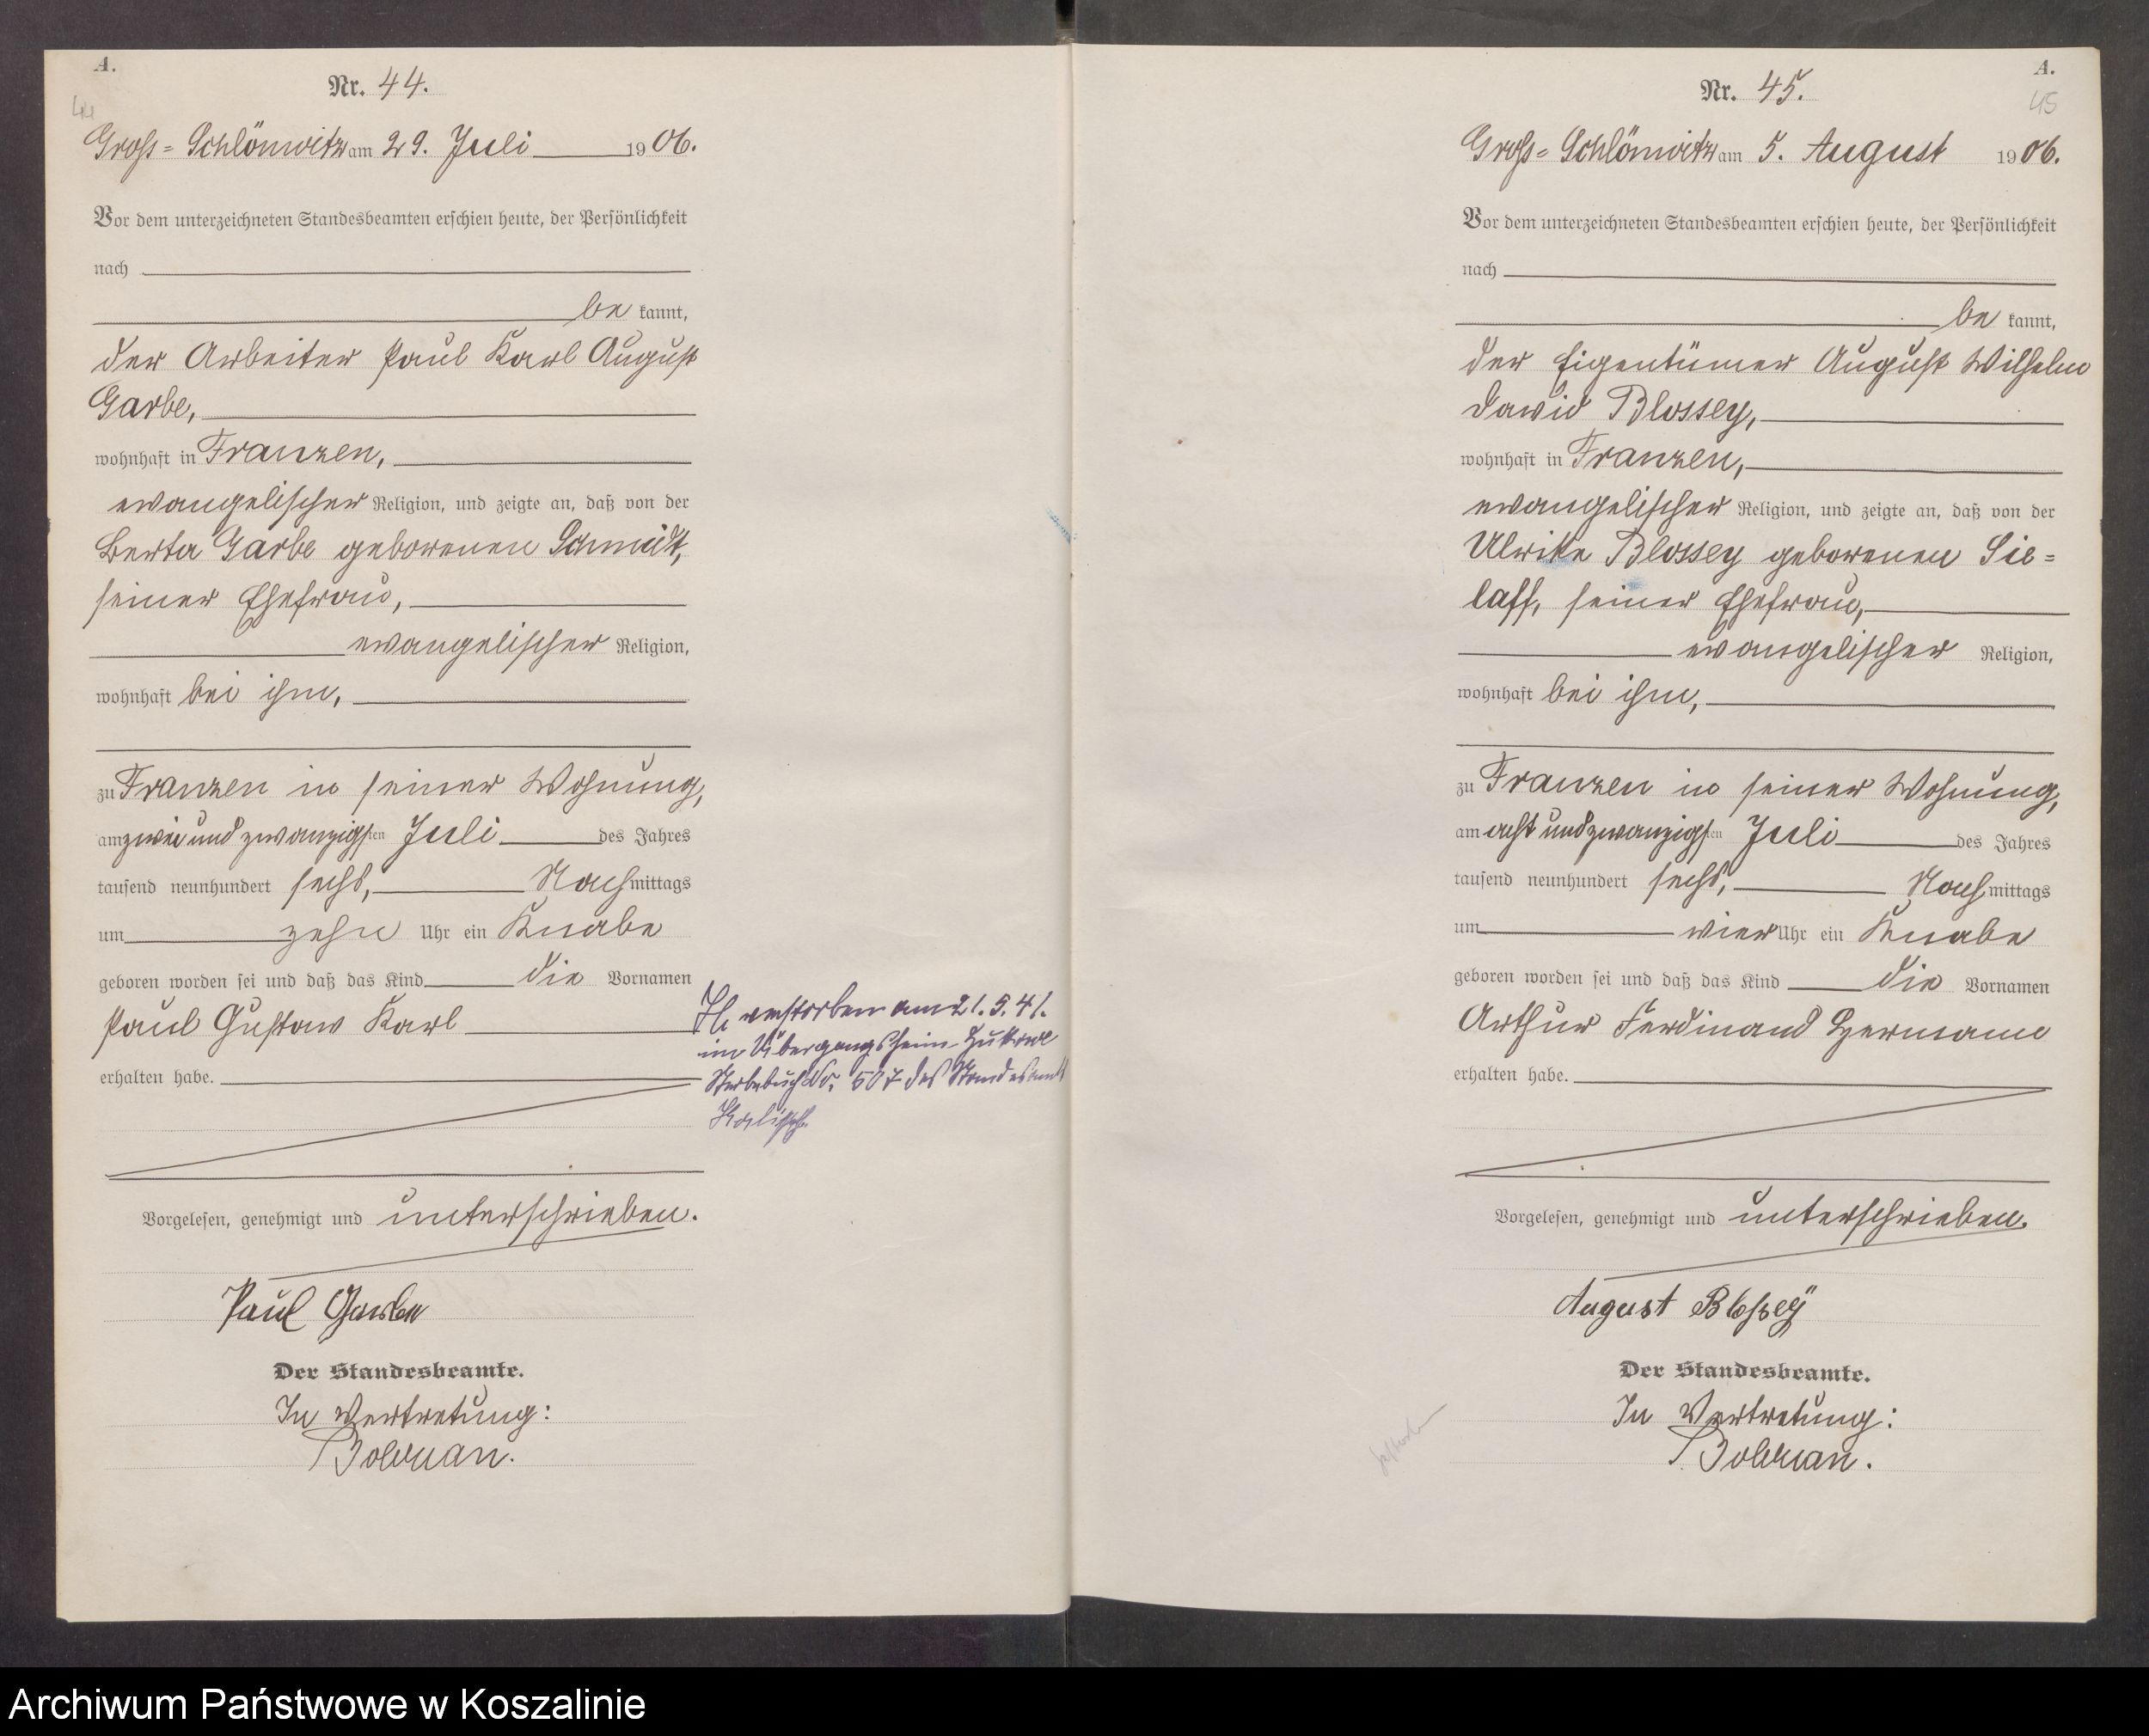 A.
Nr. 44.
44
Gross-Schlönwitz am 29. Juli 1906.
Vor dem unterzeichneten Standesbeamten erschien heute, der Persönlichkeit
nach
be kannt,
der Arbeiter Paul Karl August
Garbe,
wohnhaft in Franzen,
evangelischer Religion, und zeigte an, daß von der
Berta Garbe geborenen Schmidt,
seiner Ehefrau,
evangelischer Religion,
wohnhaft bei ihm,
zu Franzen in seiner Wohnung,
am zwei und zwanzigsten Juli des Jahres
tausend neunhundert sechs, Nachmittags
um zehn Uhr ein Knabe
geboren worden sei und daß das Kind die Vornamen
Paul Gustav Karl
erhalten habe.
verstorben am 21.5.41.
im Übergangsheim
Sterbebuch Nr. 507 des Standesamts
Vorgelesen, genehmigt und unterschrieben.
Paul Garbe
Der Standesbeamte.
In Vertretung:
A.
Nr. 45.
45
Gross-Schlönwitz am 5. August 1906.
Vor dem unterzeichneten Standesbeamten erschien heute, der Persönlichkeit
nach
be kannt,
der Eigentümer August Wilhelm
David Blossey,
wohnhaft in Franzen,
evangelischer Religion, und zeigte an, daß von der
Ulrike Blossey geborenen Sie-
laff, seiner Ehefrau,
evangelischer Religion,
wohnhaft bei ihm,
zu Franzen in seiner Wohnung,
am acht und zwanzigsten Juli des Jahres
tausend neunhundert sechs, Nachmittags
um vier Uhr ein Knabe
geboren worden sei und daß das Kind die Vornamen
Arthur Ferdinand Hermann
erhalten habe.
Vorgelesen, genehmigt und unterschrieben.
August Bloßey
Der Standesbeamte.
In Vertretung:
Archiwum Państwowe w Koszalinie